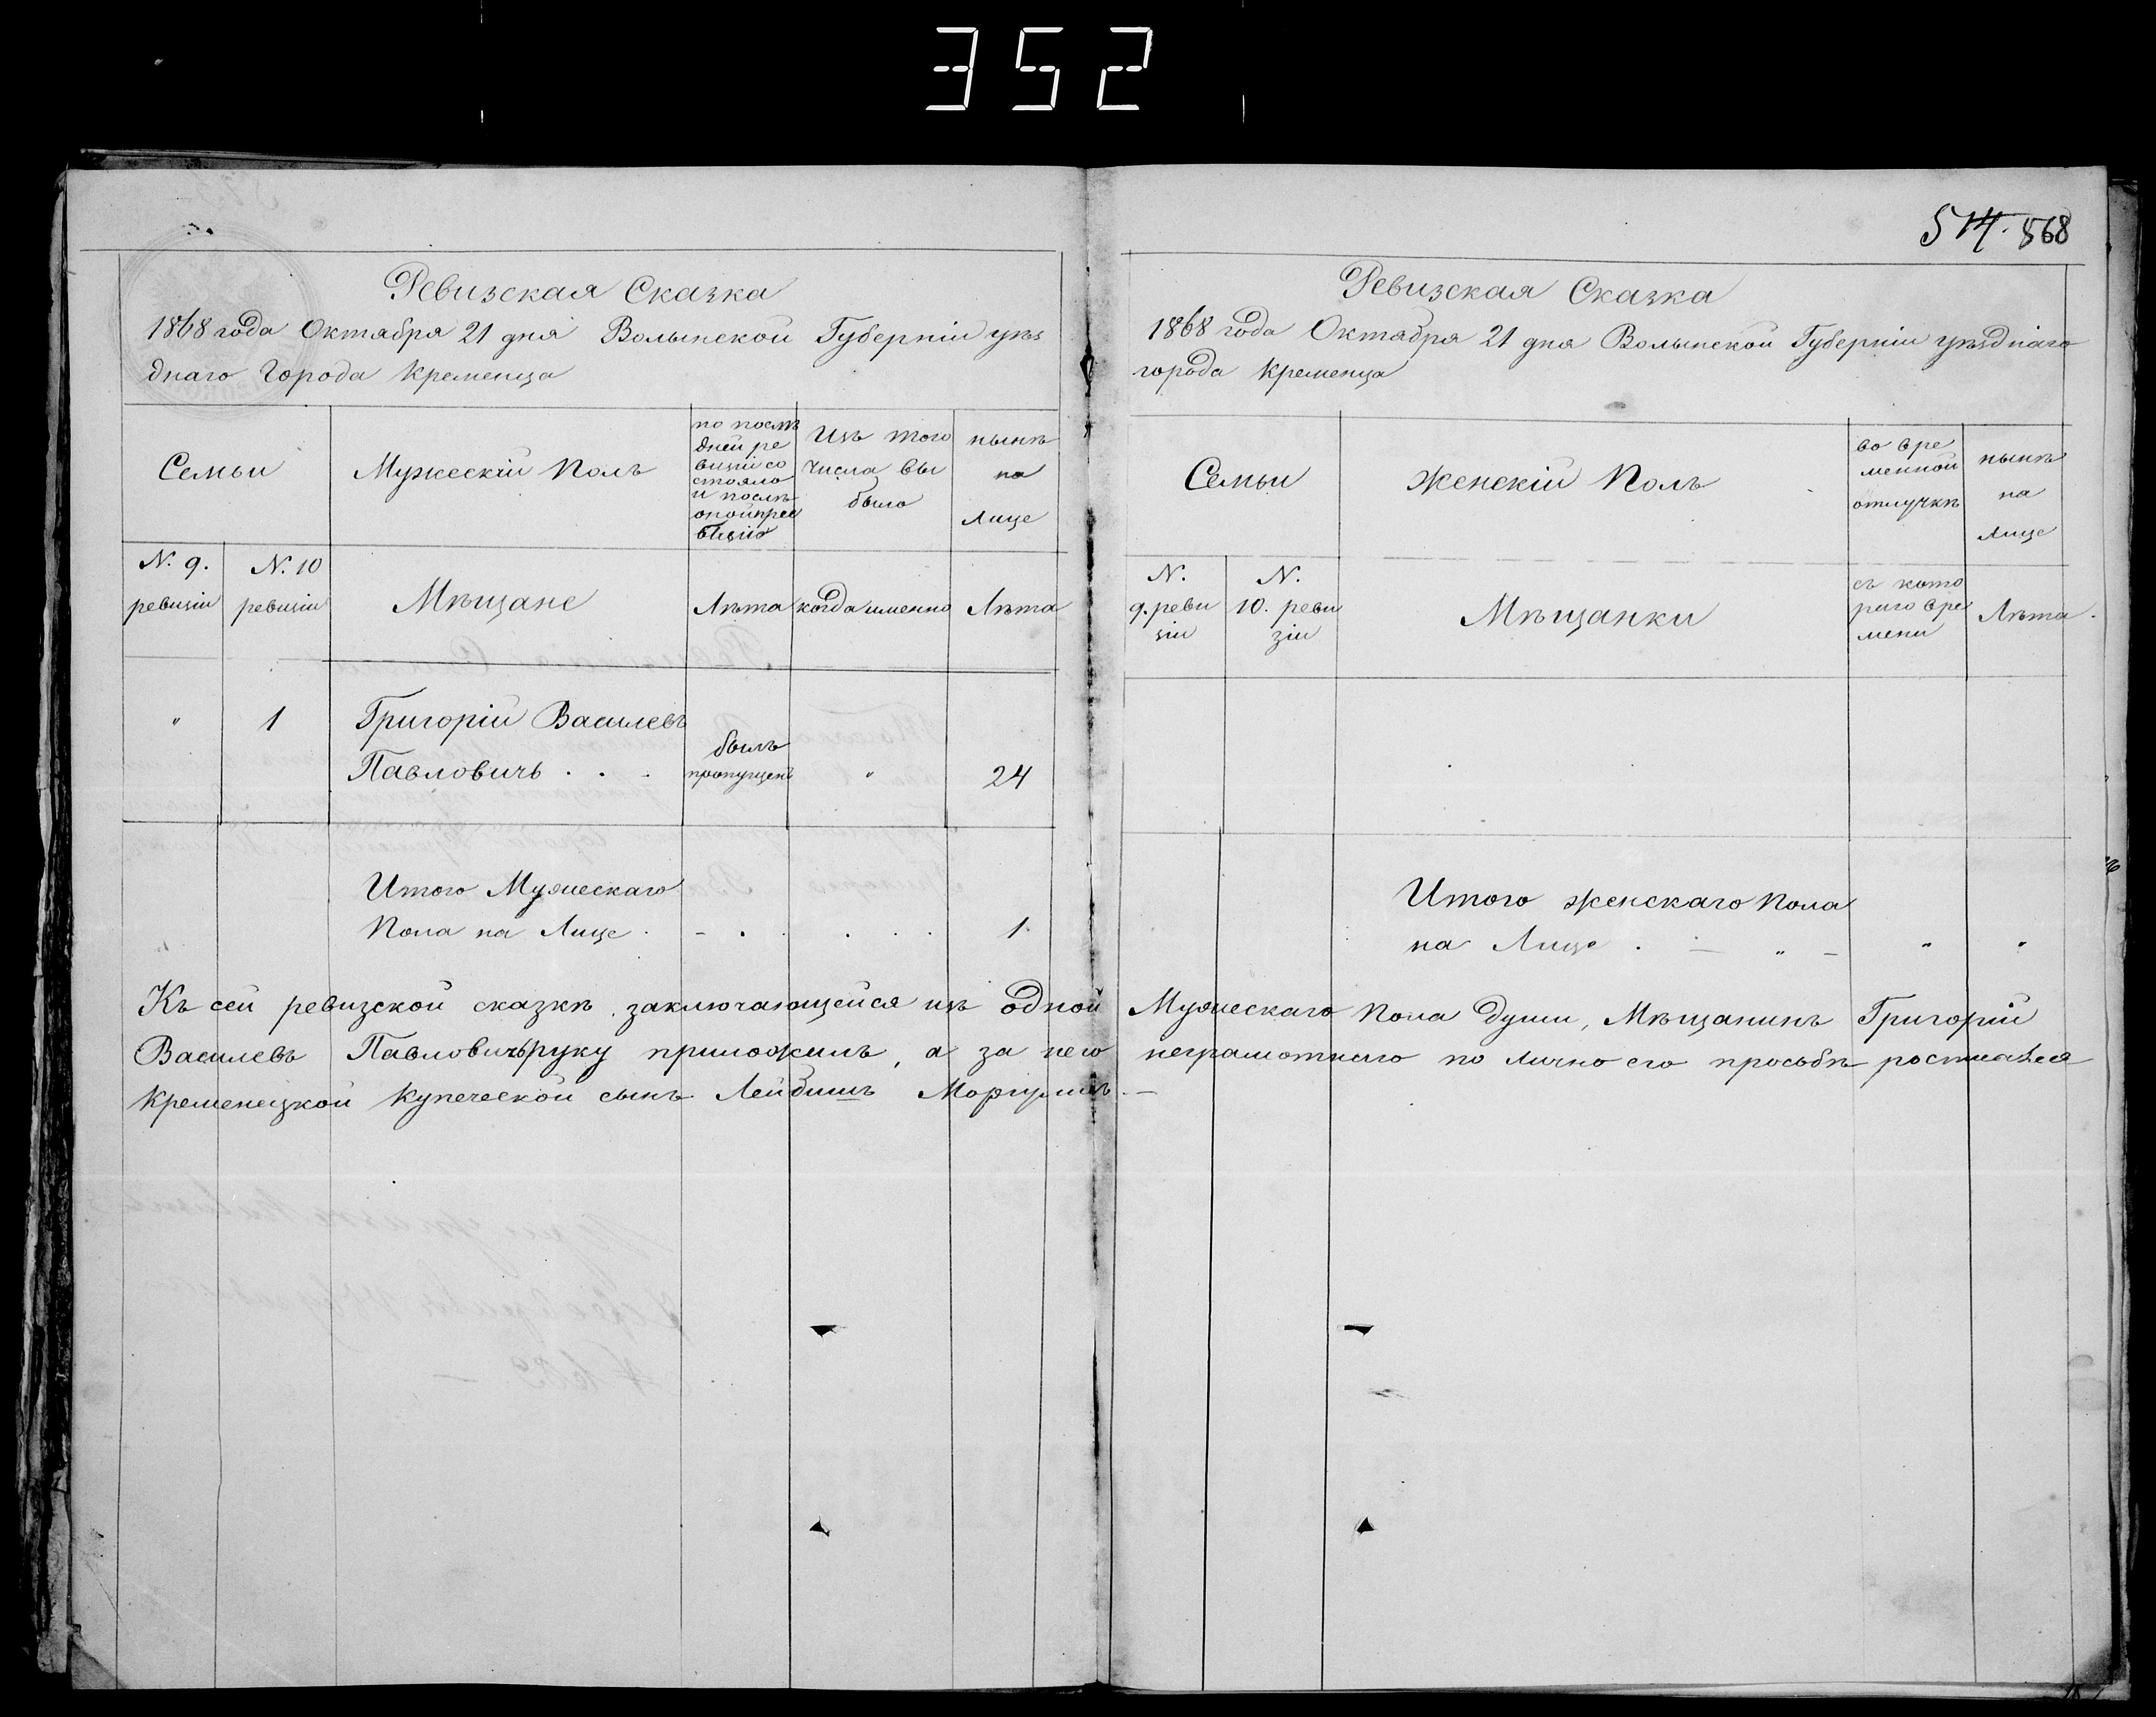 352
514. 568
Ревизская Сказка
1868 года Октября 21 дня Волынской Губерніи уѣз
днаго Города Кременца
Семьи
Мужескій Полъ
по послѣ
дней ре
визіи со
стояло
и послѣ
оной при
было
Изъ того
числа вы
было
нынѣ
на
Лице
N. 9.
ревизіи
N. 10
ревизіи
Мѣщане
Лѣта
когда именно
Лѣта
"
1
Григорій Василевъ
Павловичъ . . .
былъ
пропущенъ
"
24
Итого Мужескаго
Пола на Лице . - . . . . . 1.
Ревизская Сказка
1868 года Октября 21 дня Волынской Губерніи уѣзднаго
города Кременца
Семьи
Женскій Полъ
во вре
менной
отлучкѣ
нынѣ
на
Лице
N.
9. реви
зіи
N.
10. реви
зіи
Мѣщанки
съ кото
раго вре
мени
Лѣта.
Итого женскаго Пола
на Лице . — " — " "
Къ сей ревизской сказкѣ заключающейся изъ одной Мужескаго Пола души, Мѣщанинъ Григорій
Василевъ Павловичъ руку приложилъ, а за него неграмотнаго по лично его просьбѣ
Кременецкой купеческой сынъ Лейбишъ —